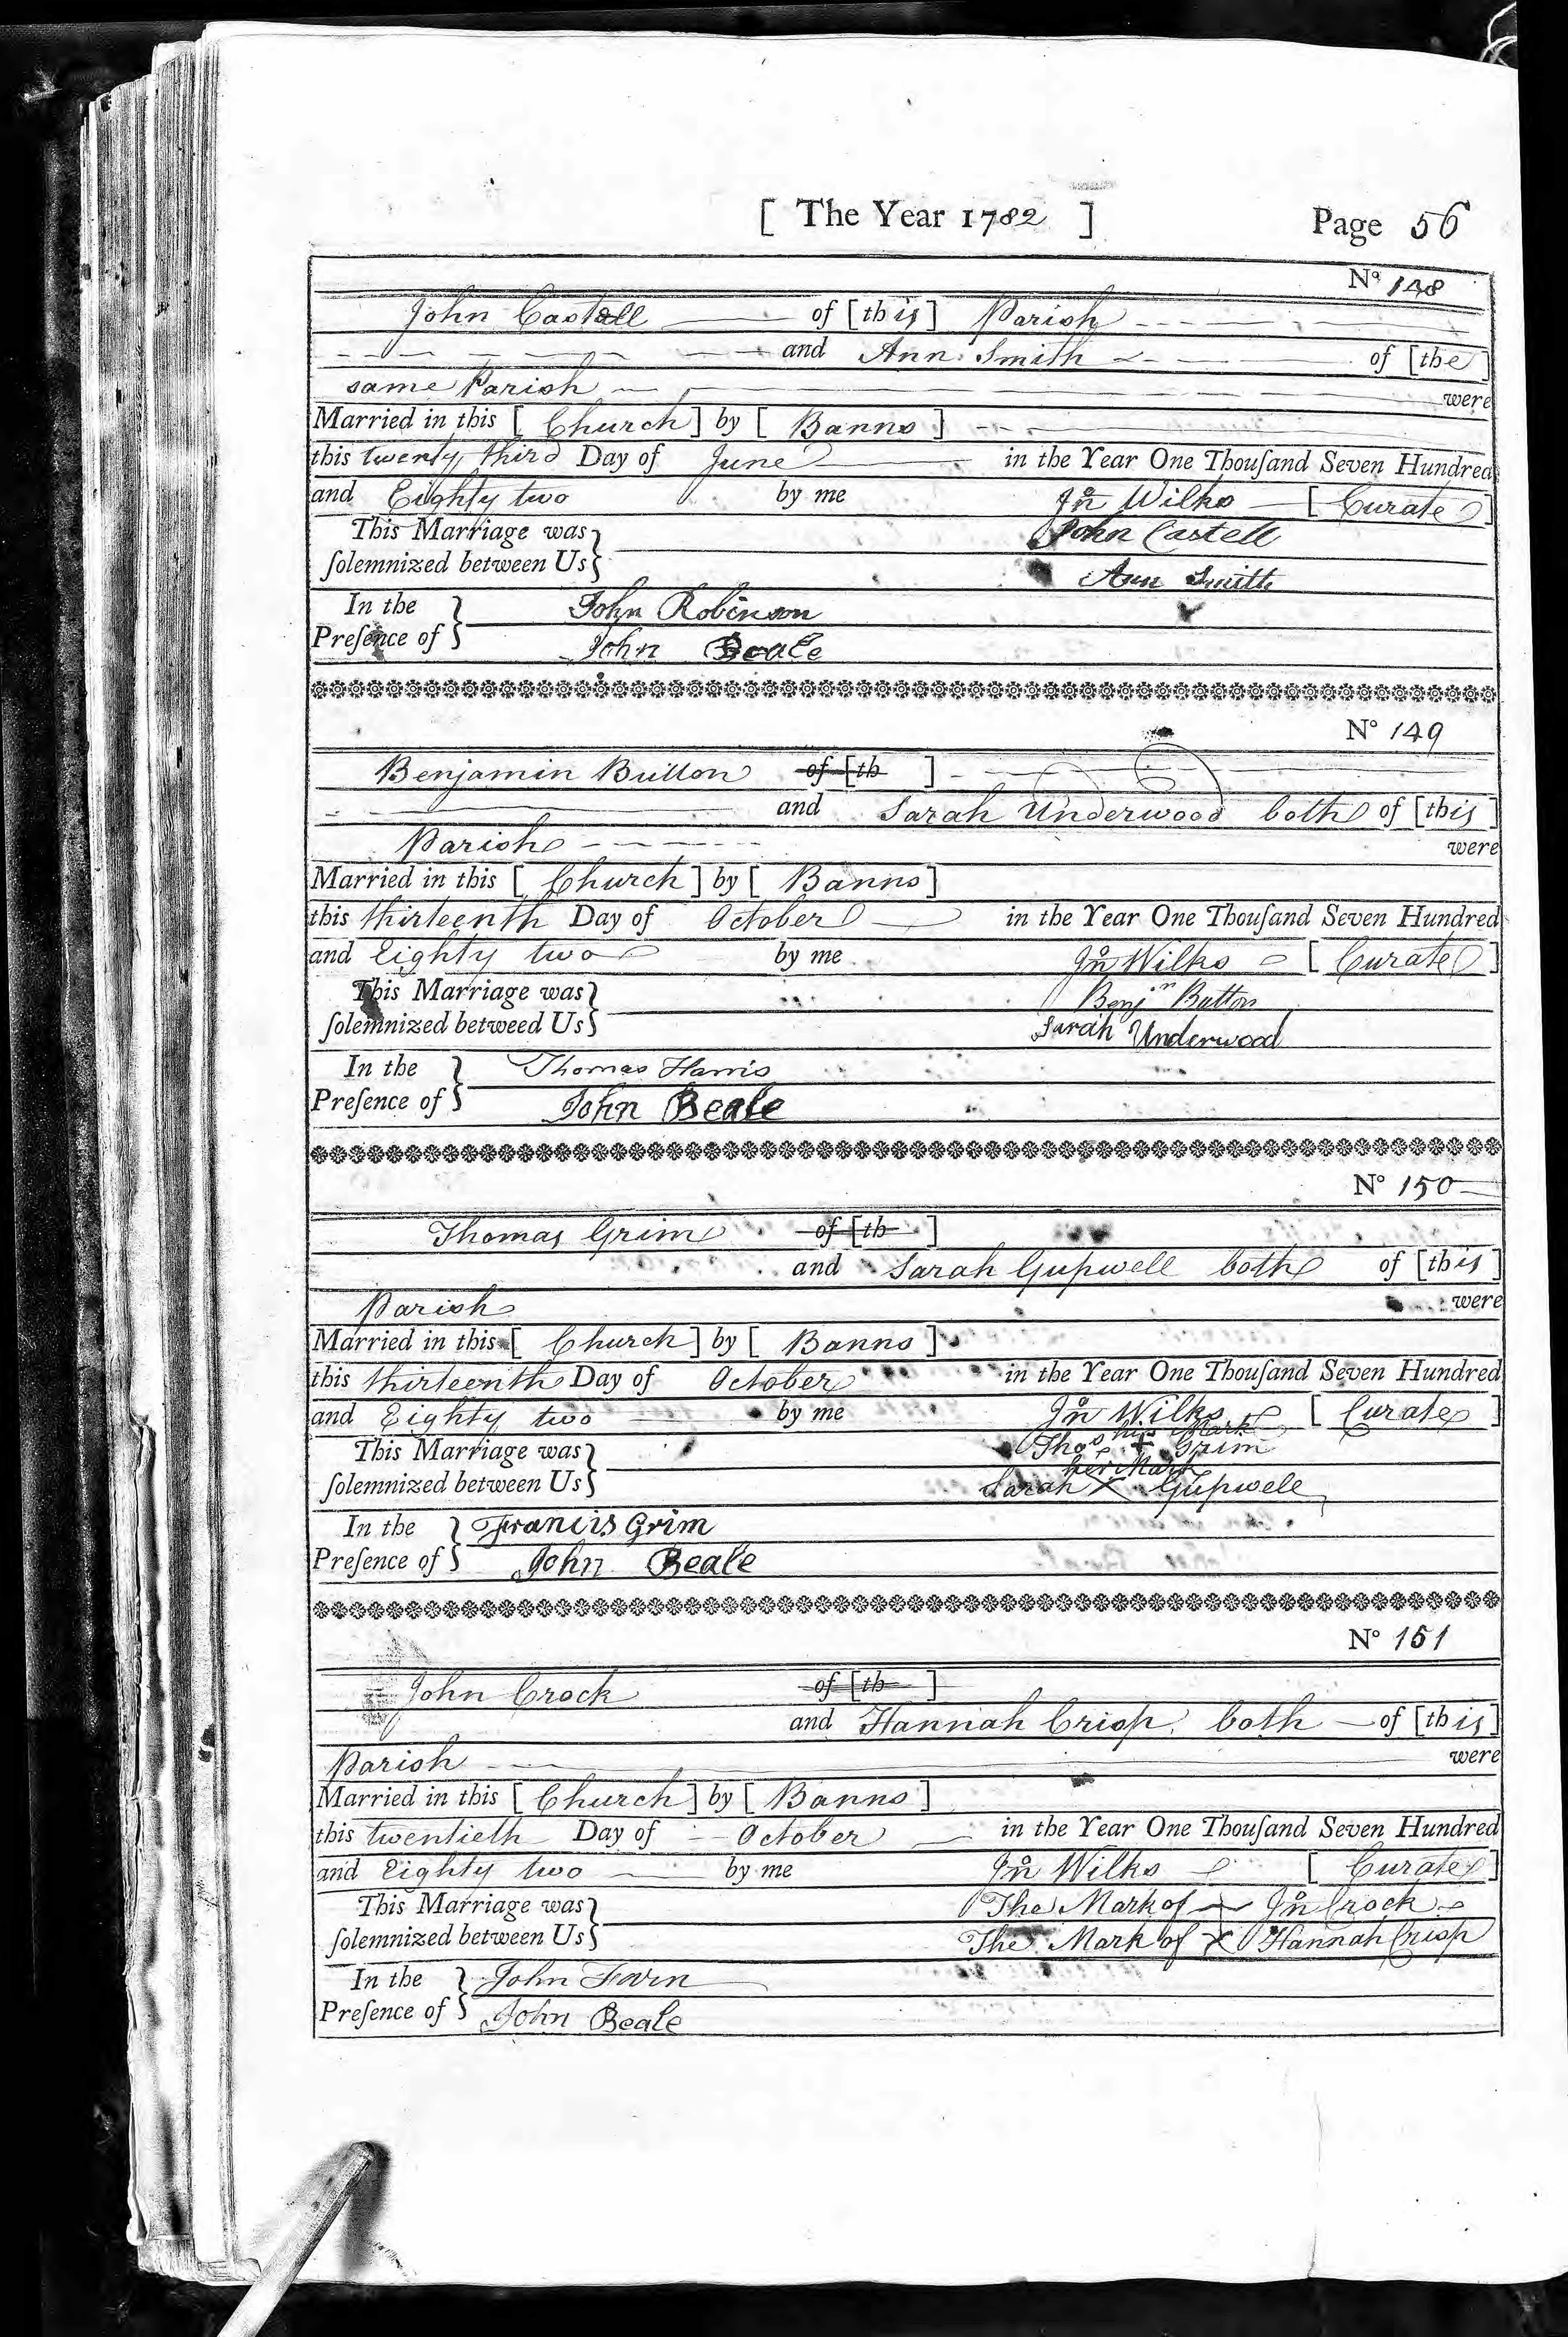 [ The Year 1782 ] Page 56
No 148
John Castell of [this] Parish
and Ann Smith of [the]
same Parish were
Married in this [ Church ] by [ Banns ]
this twenty third Day of June in the Year One Thouſand Seven Hundred
and Eighty two by me Jn̊ Wilks [ Curate ]
This Marriage was John Castell
ſolemnized between Us Ann Smith
In the John Robinson
Preſence of John Beale
No 149
Benjamin Button of [th ]
and Sarah Underwood both of [this]
Parish were
Married in this [ Church ] by [ Banns ]
this thirteenth Day of October in the Year One Thouſand Seven Hundred
and Eighty two by me Jn̊ Wilks [ Curate ]
This Marriage was Benjn Button
ſolemnized betweed Us Sarah Underwood
In the Thomas Harris
Preſence of John Beale
No 150
Thomas Grim of [th ]
and Sarah Gupwell both of [this]
Parish were
Married in this [ Church ] by [ Banns ]
this thirteenth Day of October in the Year One Thouſand Seven Hundred
and Eighty two by me Jn̊ Wilks [ Curate ]
his Mark
This Marriage was Thos + Grim
her Mark
ſolemnized between Us Sarah X Gupwell
In the Francis Grim
Preſence of John Beale
No 151
John Crock of [th ]
and Hannah Crisp both of [this]
Parish were
Married in this [ Church ] by [ Banns ]
this twentieth Day of October in the Year One Thouſand Seven Hundred
and Eighty two by me Jn̊ Wilks [ Curate ]
This Marriage was The Mark of + Jn̊ Crock
ſolemnized between Us The Mark of X Hannah Crisp
In the John Farn
Preſence of John Beale